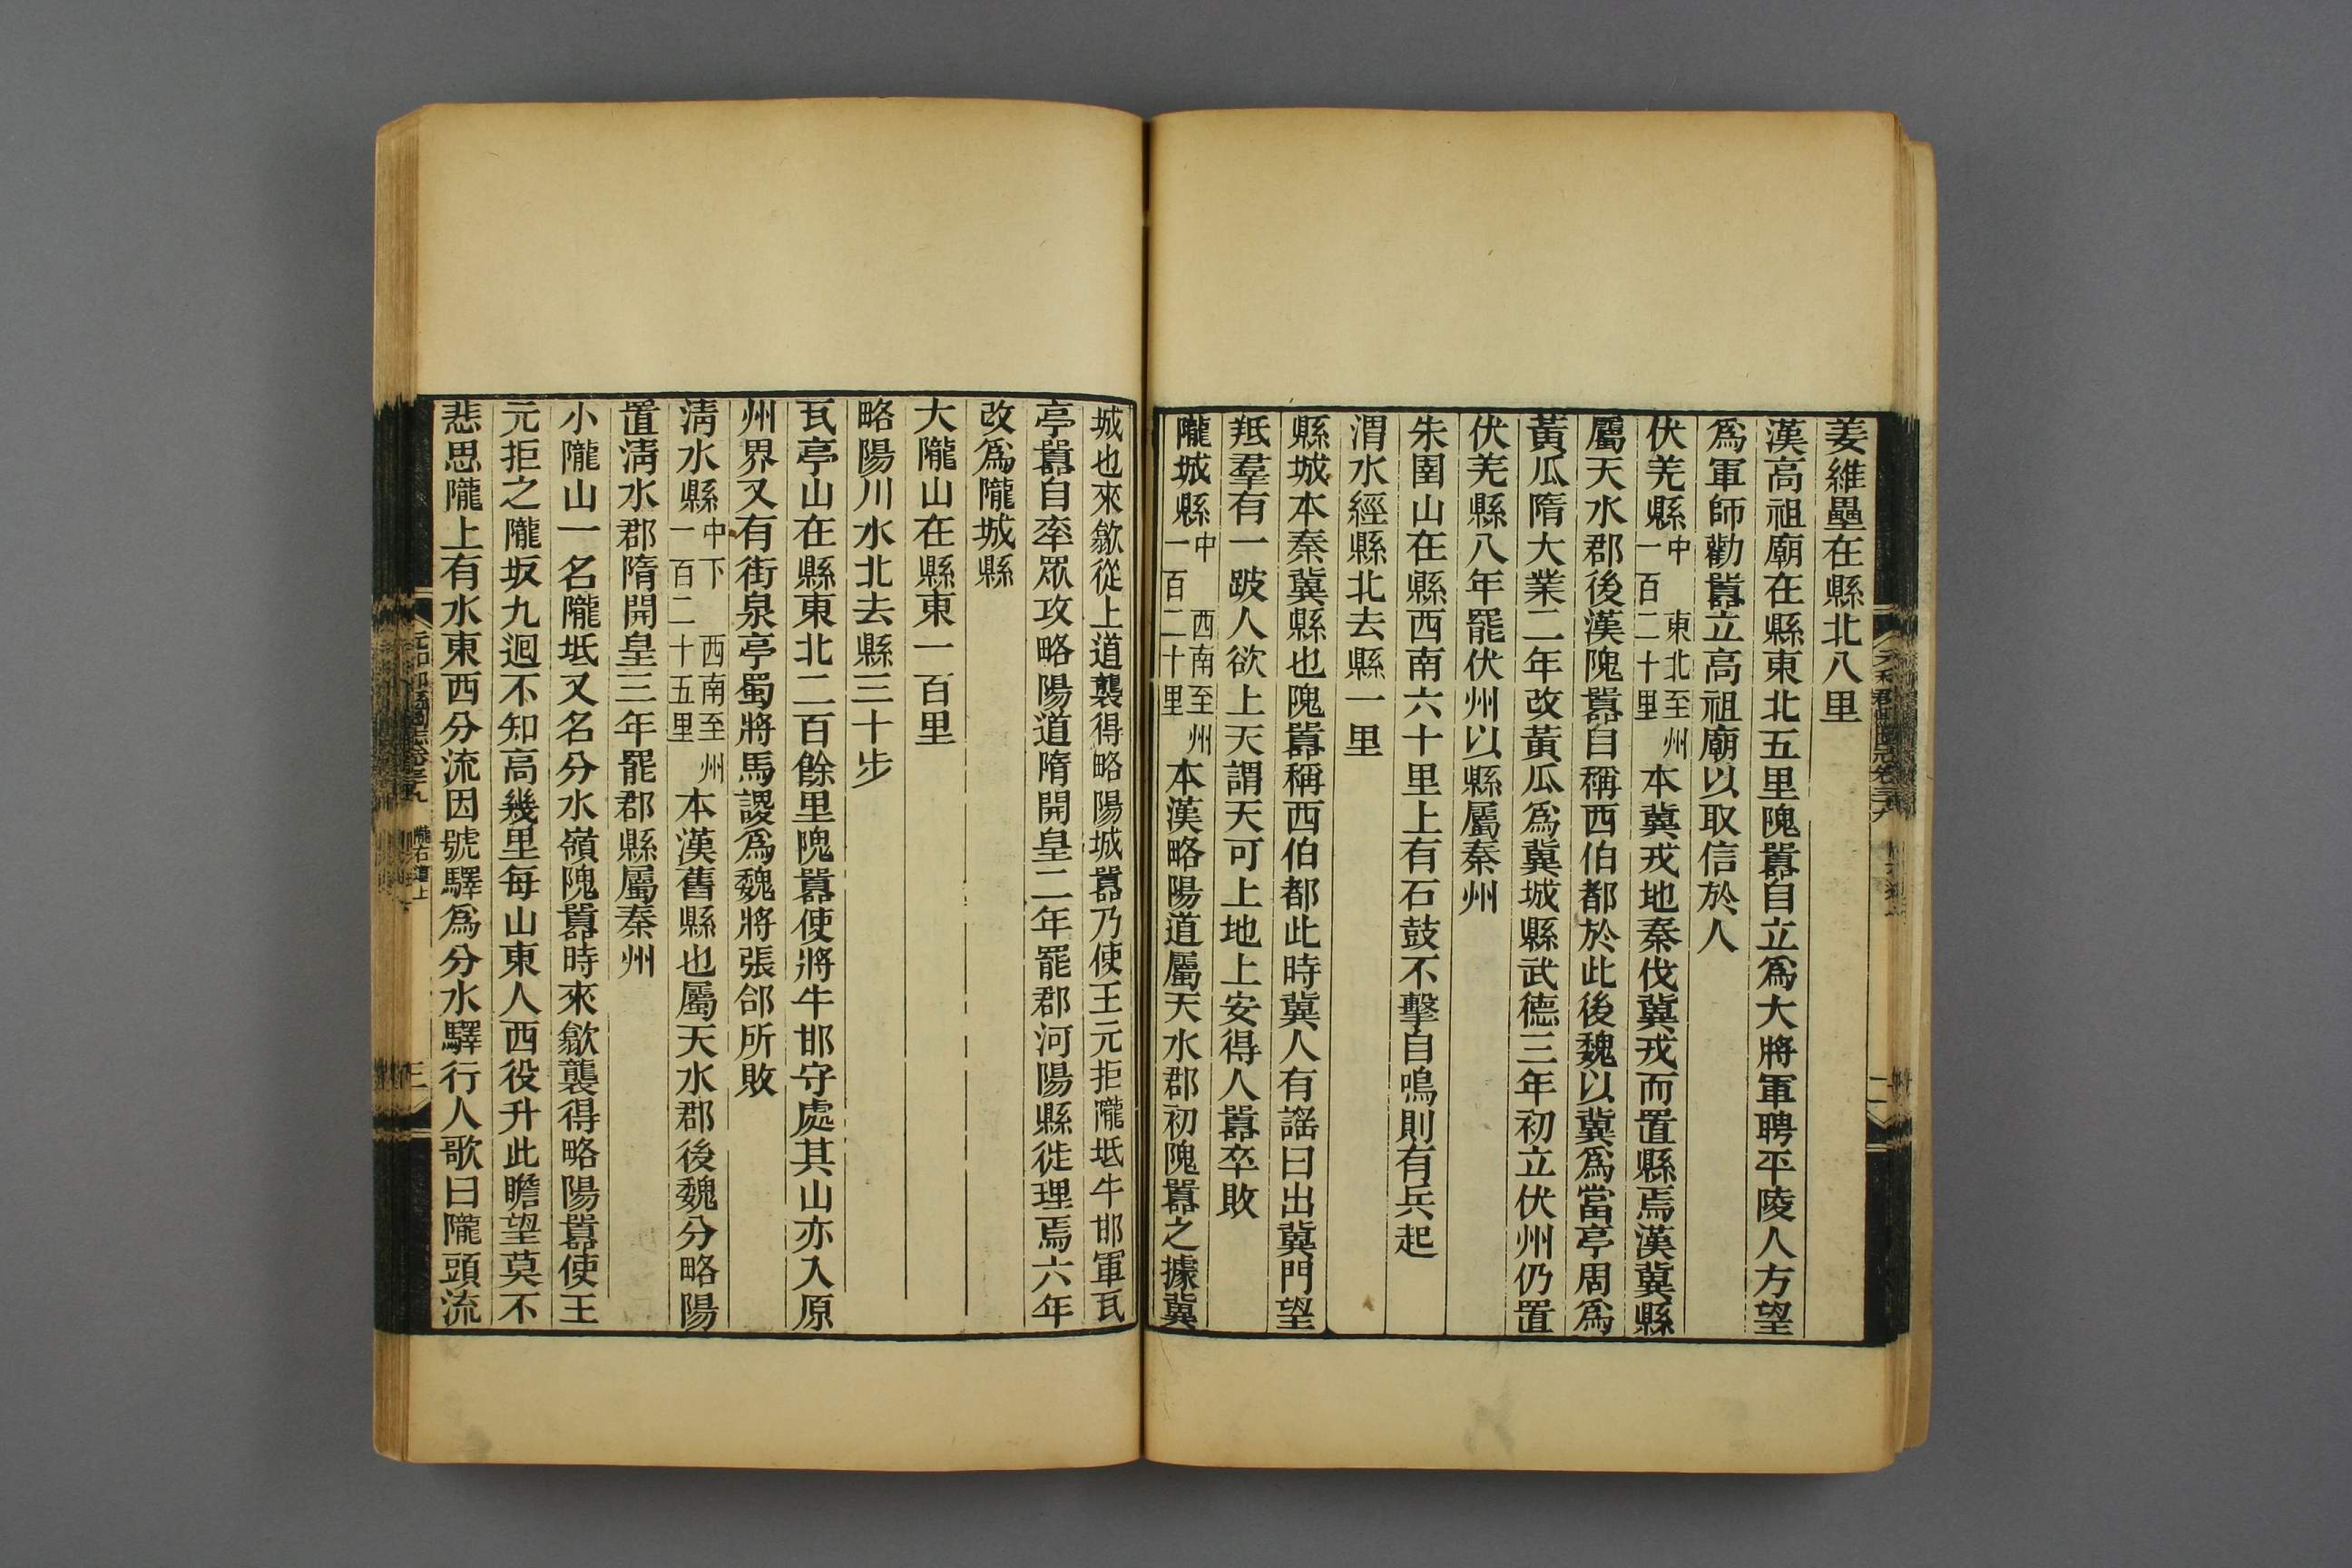 姜維壘在縣北八里
漢高祖廟在縣東北五里隗囂自立爲大將軍聘平陵人方望
爲軍師勸囂立高祖廟以取信於人
伏羌縣中 東北至州一百二十里本冀戎地秦伐冀戎而置縣焉漢冀縣
屬天水郡後漢隗囂自稱西伯都於此後魏以冀爲當亭周爲
黃瓜隋大業二年改黃瓜爲冀城縣武德三年初立伏州仍置
伏羌縣八年罷伏州以縣屬秦州
朱圉山在縣西南六十里上有石鼓不擊自鳴則有兵起
渭水經縣北去縣一里
縣城本秦冀縣也隗囂稱西伯都此時冀人有謠曰出冀門望
羝羣有一跛人欲上天謂天可上地上安得人囂卒敗
隴城縣中 西南至州一百二十里本漢略陽道屬天水郡初隗囂之據冀
城也來歙從上道襲得略陽城囂乃使王元拒隴坻牛邯軍瓦
亭囂自率眾攻略陽道隋開皇二年罷郡河陽縣徙理焉六年
改爲隴城縣
大隴山在縣東一百里
略陽川水北去縣三十步
瓦亭山在縣東北二百餘里隗囂使將牛邯守處其山亦入原
州界又有街泉亭蜀將馬謖爲魏將張郃所敗
清水縣中下 西南至州一百二十五里本漢舊縣也屬天水郡後魏分略陽
置清水郡隋開皇三年罷郡縣屬秦州
小隴山一名隴坻又名分水嶺隗囂時來歙襲得略陽囂使王
元拒之隴坂九迴不知高幾里每山東人西役升此瞻望莫不
悲思隴上有水東西分流因號驛爲分水驛行人歌曰隴頭流
隴右道上
三